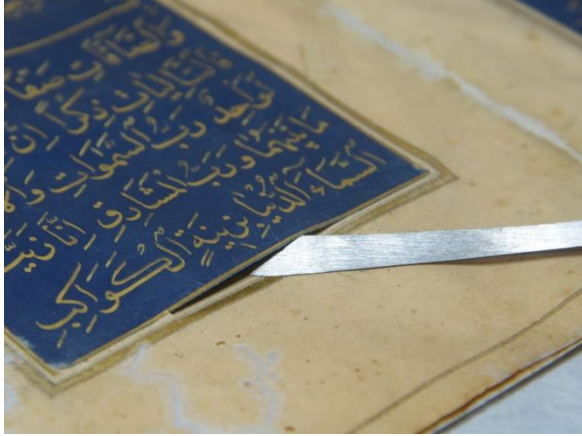 والصافات صفا
فالتاليات ذكرا ان
لواحد رب السموات
ما بينهما ورب المشارق انا
السماء الدنيا بزينة الكواكب